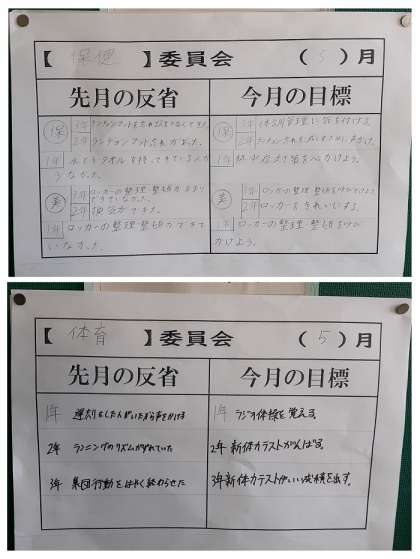 【 保健 】委員会 ( 5 )月
先月の反省 今月の目標
保 3年 ランチョンマットを忘れる人を少なくできた。
2年 ランチョンマット忘れ
1年 水とうタオルを持ってきている人が
少なかった。
美 3年 ロッカーの整理・整頓があまり
できていなかった。
2年 換気ができた。
1年 ロッカーの整理・整頓ができて
いなかった。
保 3年 体調管理に気を付ける。
2年 ランチョン
1年 熱中症対策を心がけよう。
美 3年 ロッカーの整理・整頓を心がけよう
2年 ロッカーをきれいにする。
1年 ロッカーの整理・整頓を心
がけよう。
【 体育 】委員会 ( 5 )月
先月の反省 今月の目標
1年 声をかける
2年 ランニングのリズムがずれていた
3年 集団行動をはやく終わらせた
1年 ラジオ体操を覚える。
2年 新体力テストがんばる。
3年 新体力テストでいい成績を出す。